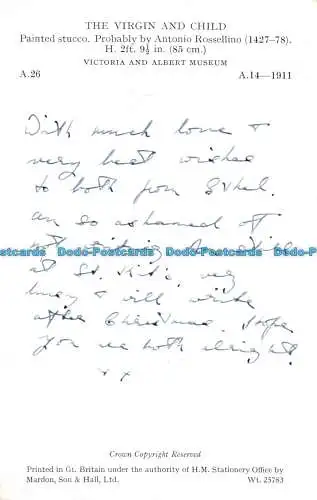 THE VIRGIN AND CHILD
Painted stucco. Probably by Antonio Rossellino (1427–78).
H. 2ft. 9½ in. (85 cm.)
VICTORIA AND ALBERT MUSEUM
A.26 A.14—1911
With much love &
very best wishes
to both from Ethel.
am so ashamed of
not writing
Dodo-Postcards Dodo-Postcards Dodo-Postcards Dodo-Postcards
at St. very
busy & will write
after Christmas. Hope
Dodo-Postcards Dodo-Postcards Dodo-Postcards Dodo-Postcards
you are both alright
x x
Crown Copyright Reserved
Printed in Gt. Britain under the authority of H.M. Stationery Office by
Mardon, Son & Hall, Ltd. Wt. 25783